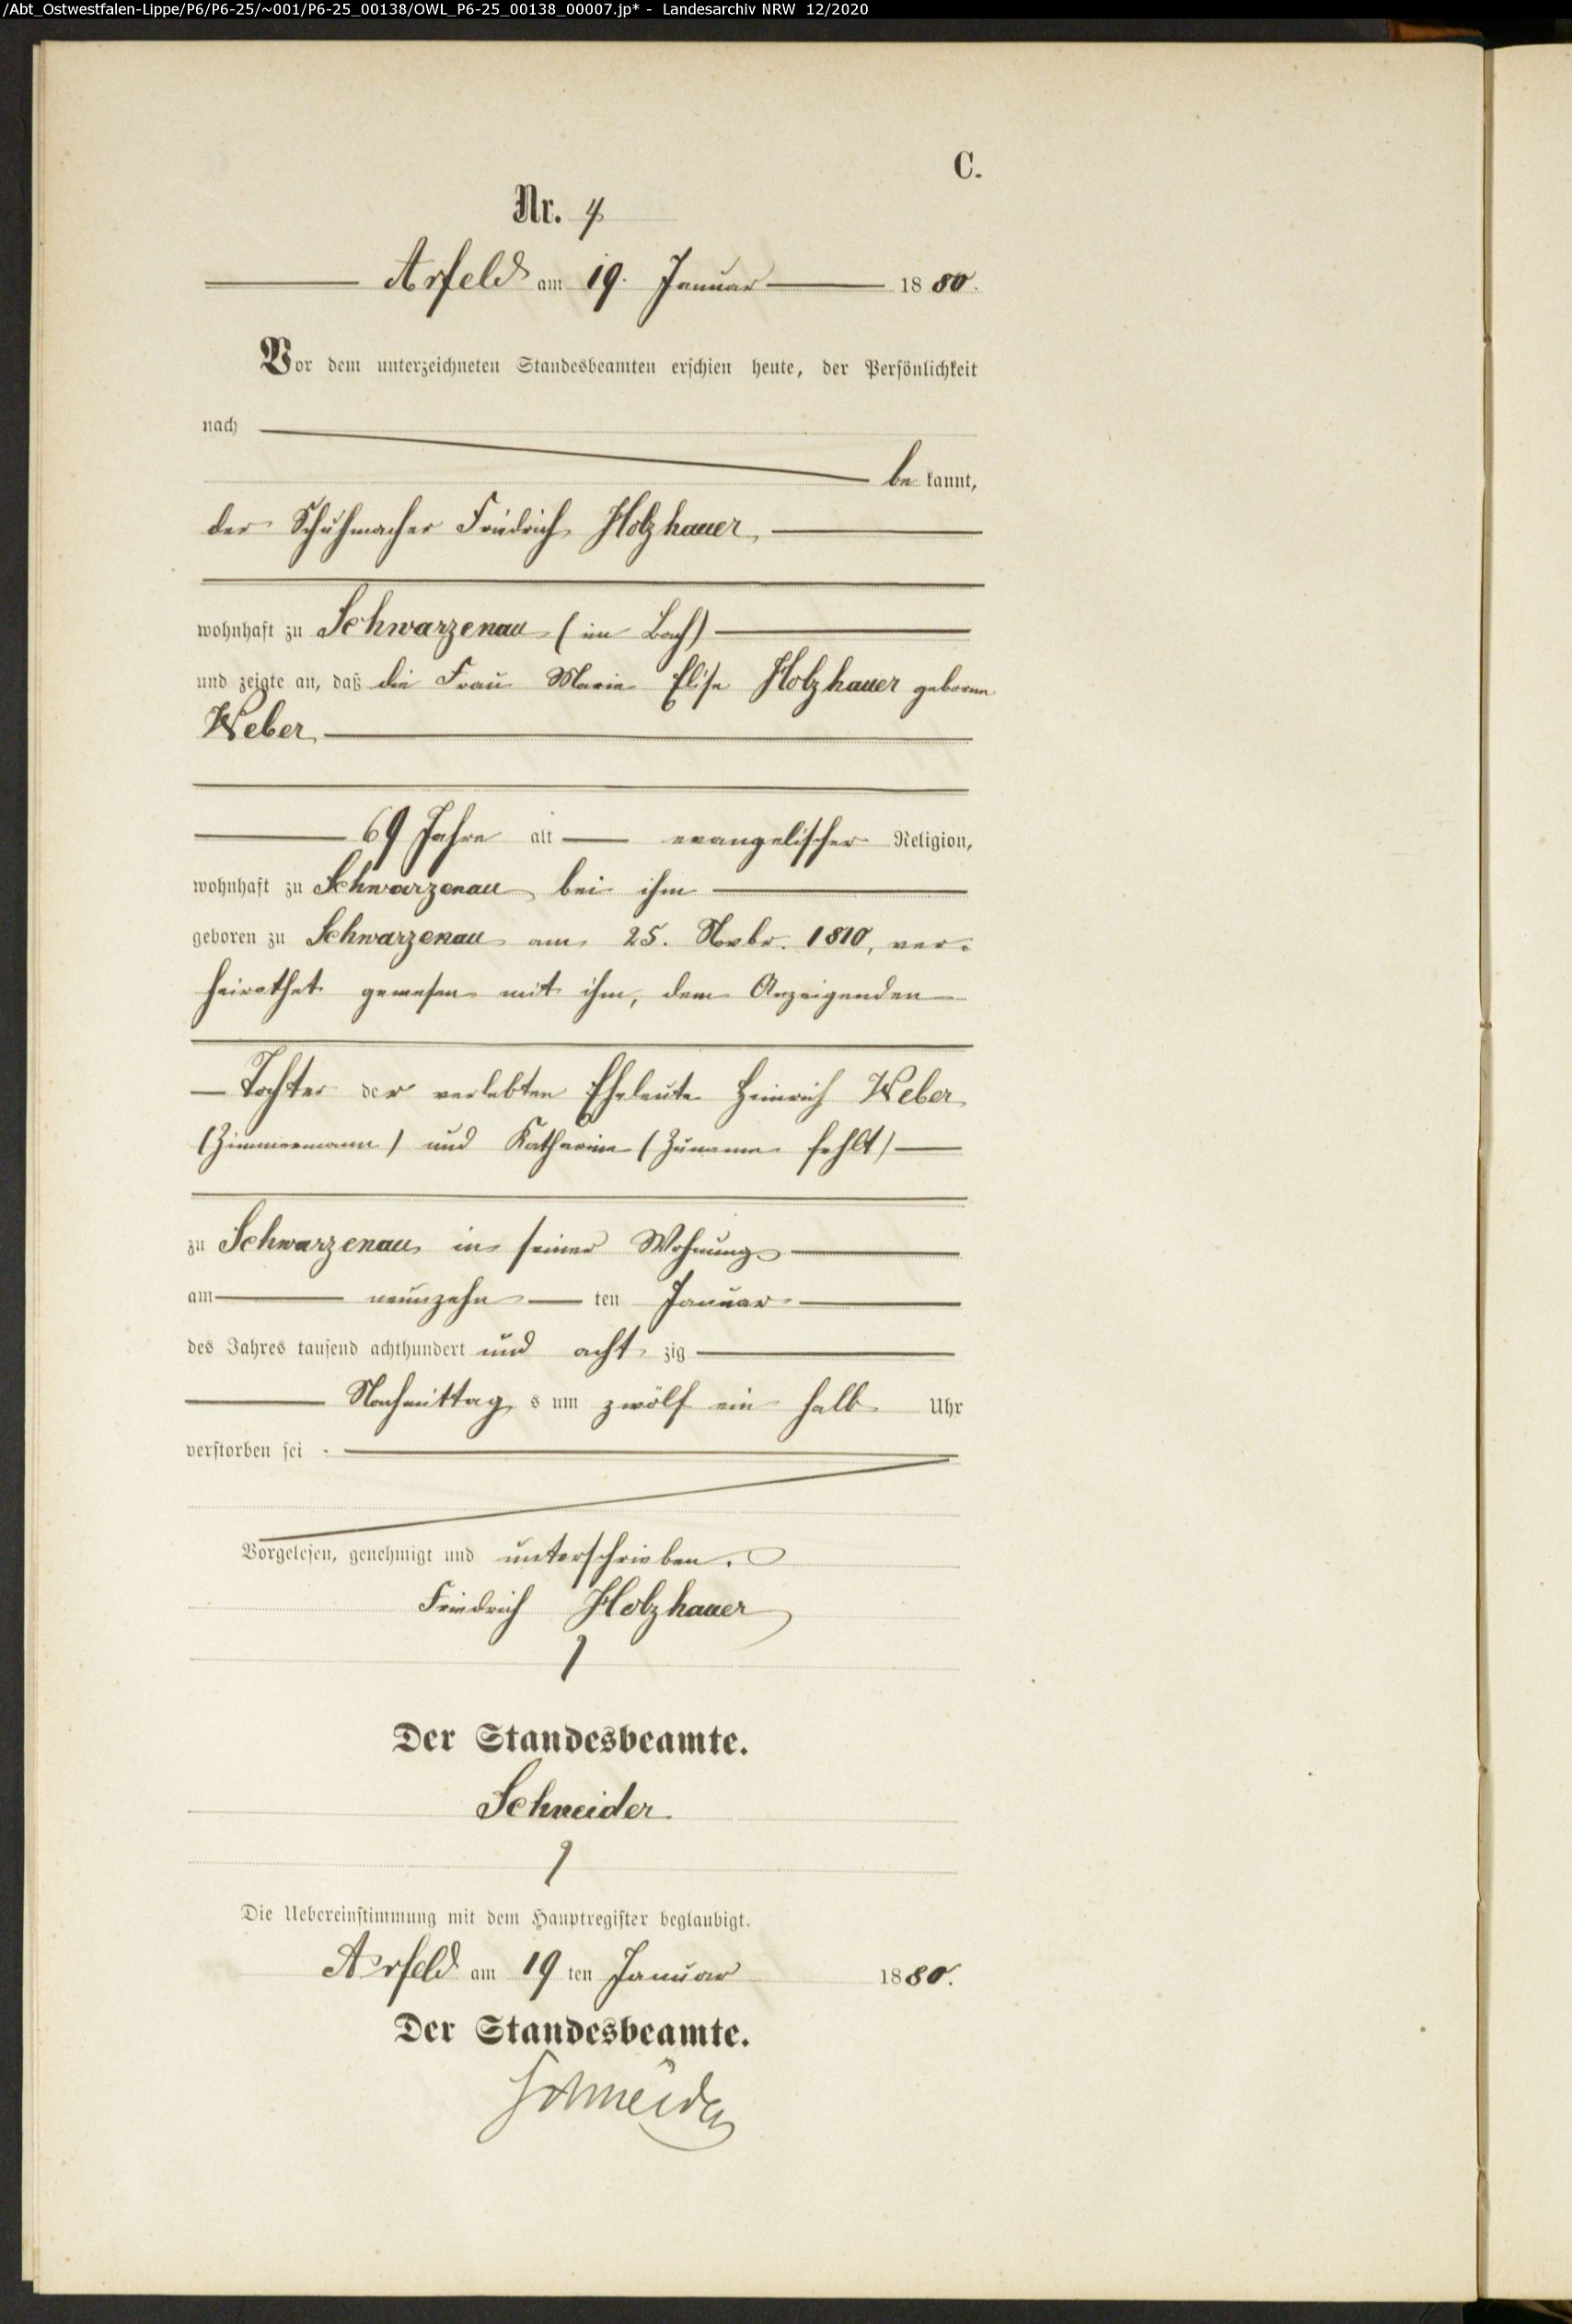 /Abt_Ostwestfalen-Lippe/P6/P6-25/~001/P6-25_00138/OWL_P6-25_00138_00007.jp* - Landesarchiv NRW 12/2020
C.
Nr. 4
Arfeld am 19. Januar 1880.
Vor dem unterzeichneten Standesbeamten erschien heute, der Persönlichkeit
nach
be kannt,
der Schuhmacher Friedrich Holzhauer,
wohnhaft zu Schwarzenau (im Bach)
und zeigte an, daß die Frau Marie Elise Holzhauer geborene
Weber,
69 Jahre alt evangelischer Religion,
wohnhaft zu Schwarzenau bei ihm
geboren zu Schwarzenau am 25. Novbr. 1810, ver-
heirathet gewesen mit ihm, dem Anzeigenden
Tochter der verlebten Eheleute Heinrich Weber
(Zimmermann) und Katharine (Zuname fehlt)
zu Schwarzenau in seiner Wohnung
am neunzehn ten Januar
des Jahres tausend achthundert und acht zig
Nachmittag s um zwölf ein halb Uhr
verstorben sei.
Vorgelesen, genehmigt und unterschrieben.
Friedrich Holzhauer
Der Standesbeamte.
Schneider
Die Uebereinstimmung mit dem Hauptregister beglaubigt.
Arfeld am 19 ten Januar 1880.
Der Standesbeamte.
Schneider